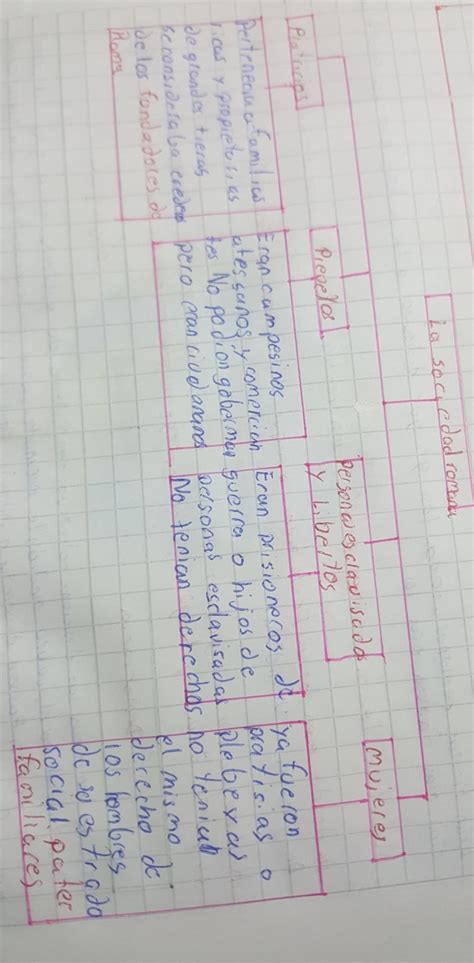 La sociedad romana
Patricios
Pertenecian a familias
ricas y propietarias
de grandes tieras
se consideraba
de los fundadores de
Roma
Plebellos
Eran campesinos
atessanos y comercian
tes No podian gobernar
pero eran ciudadanos
personas esclavisadas
y Libertos
Eran prisioneros de
guerra o hijos de
personas esclavisadas
No tenian derechos
mujeres
ya fueron
pratisias o
plebeyas
no tenian
el mismo
derecho de
los hombres
de su estrado
social pater
familiares